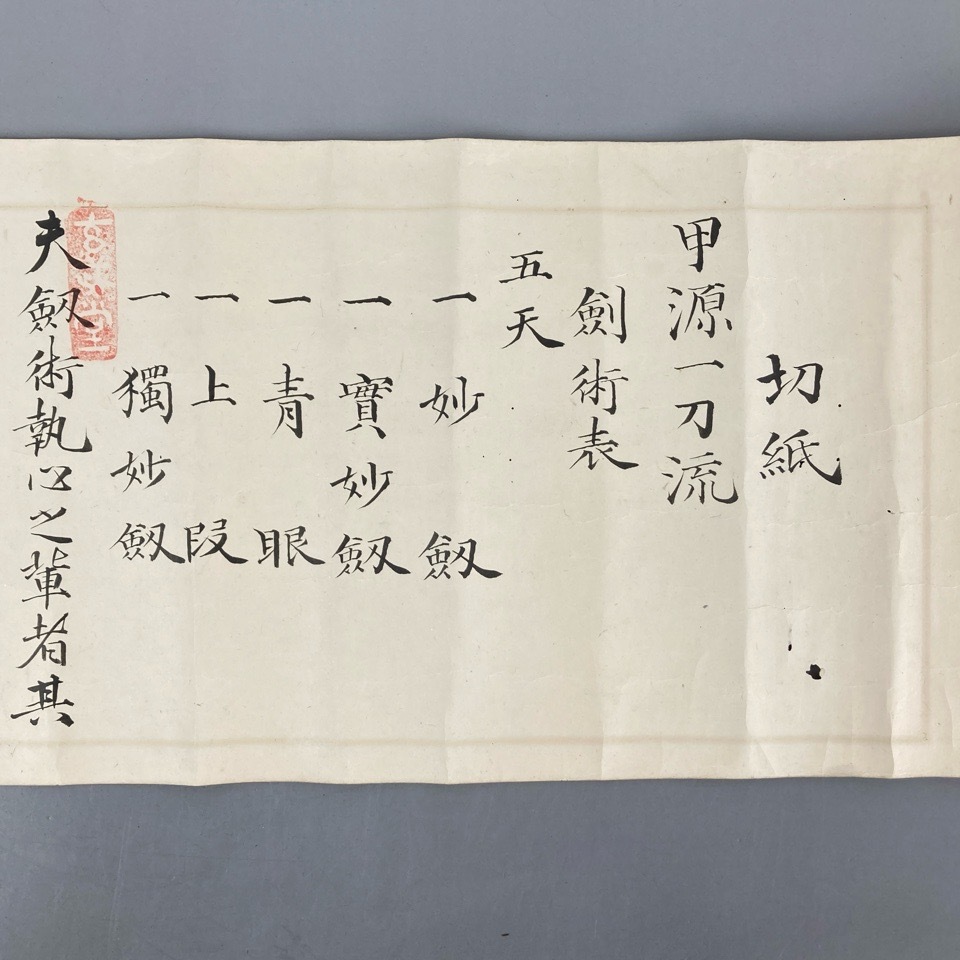 切紙
甲源一刀流
劍術表
五天
一 妙劔
一 實妙劔
一 青眼
一 上段
一 獨妙劔
夫劔術執心之輩者其